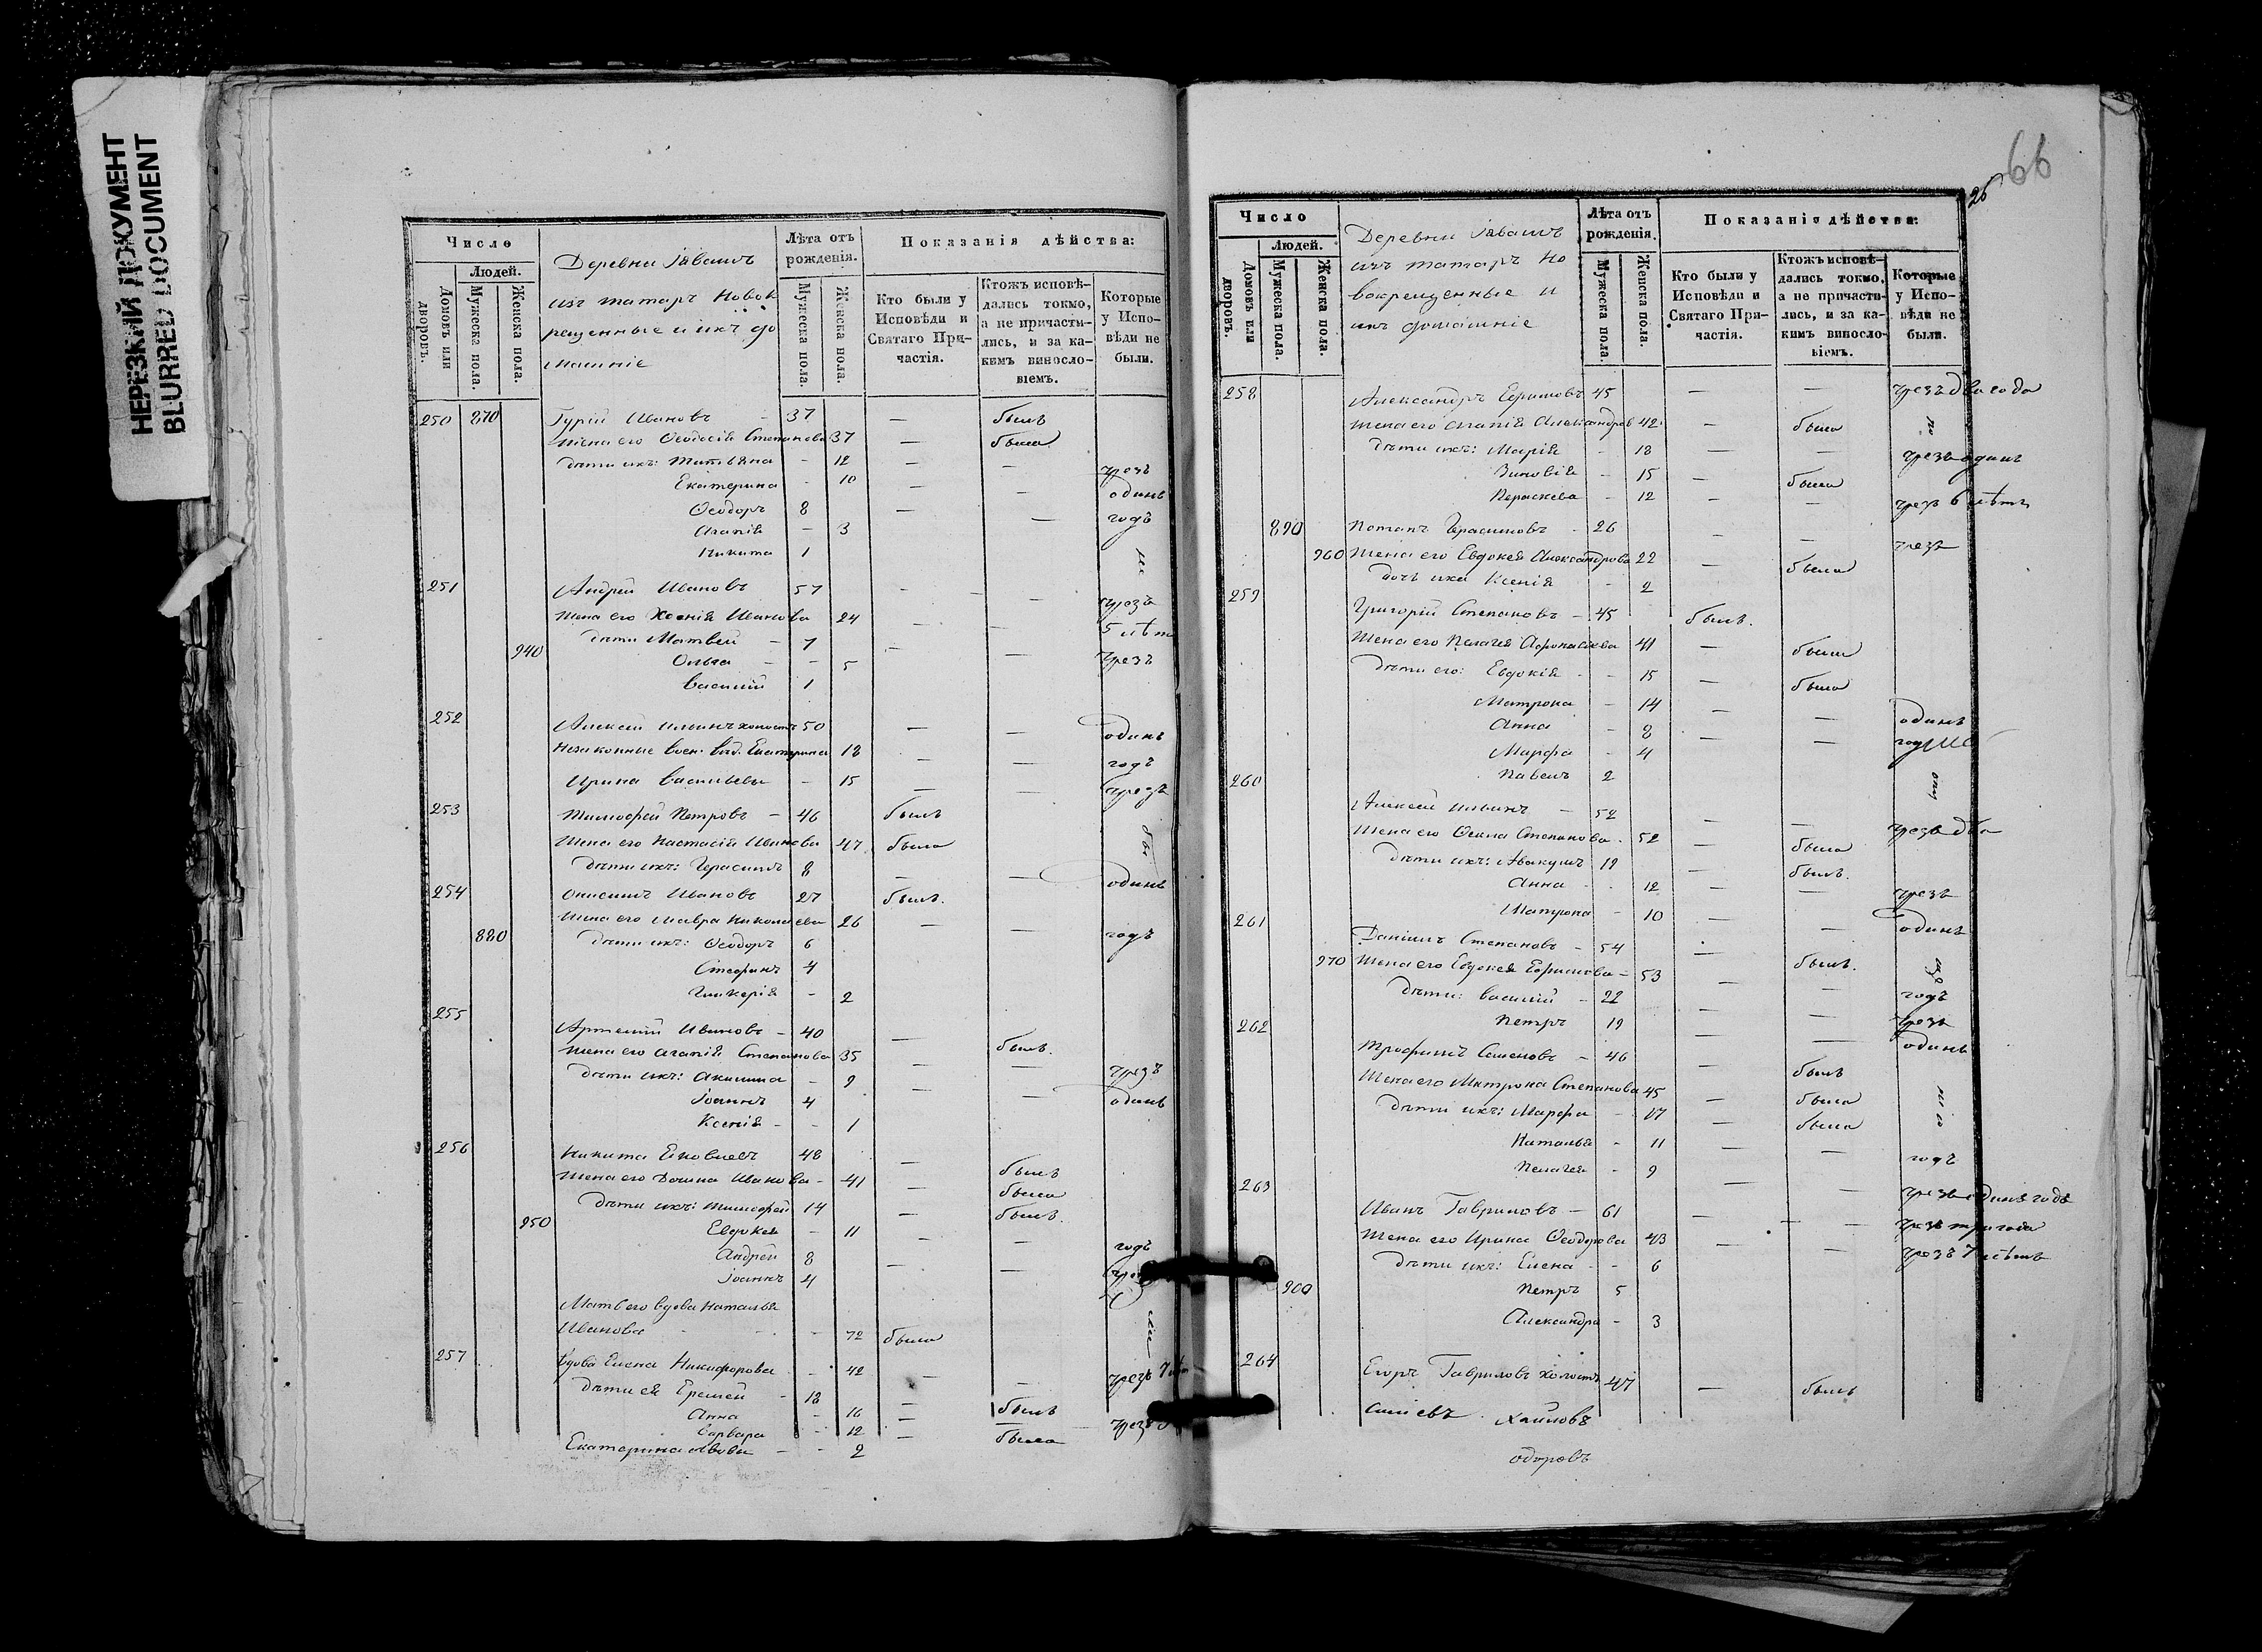 НЕРЕЗКИЙ ДОКУМЕНТ
BLURRED DOCUMENT
Число
Людей.
Домовъ или дворовъ.
Мужеска пола.
Женска пола.
Деревни
изъ татаръ Новок
рещенные и ихъ до
машніе
Лѣта отъ рожденія.
Мужеска пола.
Женска пола.
Показанія дѣйства:
Кто были у Исповѣди и Святаго Причастія.
Ктожъ исповѣдались токмо, а не причастились, и за какимъ винословіемъ.
Которые у Исповѣди не были.
250 870 Гурій Ивановъ - 37 — былъ
жена его Ѳеодосія Степанова 37 — была
дѣти ихъ: Татьяна - 12 — — чрезъ
Екатерина - 10 — — одинъ
Ѳеодоръ 8 — — годъ
Агапія - 3
Никита 1
251 Андрей Ивановъ 57 — —
жена его Ксенія Иванова 24 — — чрезъ
дѣти Матвей - 7 — — 5 лѣт
940 Ольга - - 5 чрезъ
Василій 1
252 Алексей Ильинъ холостъ 50 — — одинъ
Екатерина 18 — — годъ
Ирина Васильева - 15 — — чрезъ
253 Тимофей Петровъ - 46 былъ
жена его Настасія Иванова 47 была
дѣти ихъ: Герасимъ 8 — — одинъ
254 Онисимъ Ивановъ 27 былъ.
жена его Мавра Николаева 26 — — годъ
880 дѣти ихъ: Ѳеодоръ 6
Стефанъ 4
Гликерія - 2
255 Артемій Ивановъ - 40 — былъ.
жена его Агапія Степанова 35 — — чрезъ
дѣти ихъ: Акилина - 9 — — одинъ
Іоаннъ 4
Ксенія - - 1
256 Никита Яковлевъ 48 — былъ
жена его Домна Иванова - 41 — была
дѣти ихъ: Тимофей 14 — былъ.
950 Евдокея - 11 — — годъ
Андрей 8 — —
Іоаннъ 4
Мать его вдова Наталья
Иванова - - - 72 была
257 Вдова Елена Никифорова - 42 — — чрезъ 7 лѣт
дѣти ея Еремей - 18 — былъ
Анна - 16 — — чрезъ
Варвара - 12 — была
Екатерина - - 2
66
26
Число
Людей.
Домовъ или дворовъ.
Мужеска пола.
Женска пола.
Деревни
изъ татаръ но
вокрещенные и
ихъ домашніе
Лѣта отъ рожденія.
Мужеска пола.
Женска пола.
Показанія дѣйства:
Кто были у Исповѣди и Святаго Причастія.
Ктожъ исповѣдались токмо, а не причастились, и за какимъ винословіемъ.
Которые у Исповѣди не были.
258 Александръ Ефимовъ 45 — — чрезъ два года
жена его Агапія Александров 42 — была
дѣти ихъ: Марія - 18 — — чрезъ одинъ
Зиновія - 15 — была
Параскева - 12 — — чрез 6 лѣтъ
890 Потапъ Герасимовъ - 26 — — чрезъ
960 жена его Евдокея Александрова 22 — была
дочь ихъ Ксенія - 2
259 Григорій Степановъ - 45 былъ.
жена его Пелагея Афонасіева 41 — была
дѣти его: Евдокія - - 15 — была
Матрона - 14 — — одинъ
Анна - 8 — — год
Марфа - 4
Павелъ 2
260 Алексей Ильинъ - 52 — — чрезъ два
жена его Ѳекла Степанова - 52 — была
дѣти ихъ: Авакумъ 19 — былъ.
Анна - - 12 — — чрезъ
Матрона - 10 — — одинъ
261 Даніилъ Степановъ - 54 — былъ.
970 жена его Евдокея Ефимова - 53 — — годъ
дѣти: Василій - 22 — — чрезъ
Петръ 19 — — одинъ
262 Трофимъ Семеновъ - 46 — былъ
жена его Матрона Степанова 45 — была
дѣти ихъ: Марфа - 17 — была
Наталья - 11 — — годъ
Пелагея - 9
263 Иванъ Гавриловъ - 61 — — чрезъ одинъ годъ
жена его Ирина Ѳеодорова 43 — — чрезъ три года
дѣти ихъ: Елена - - 6 — — чрезъ 7 лѣтъ
900 Петръ 5
Александра - 3
264 Егоръ Гавриловъ холостъ 47 — былъ